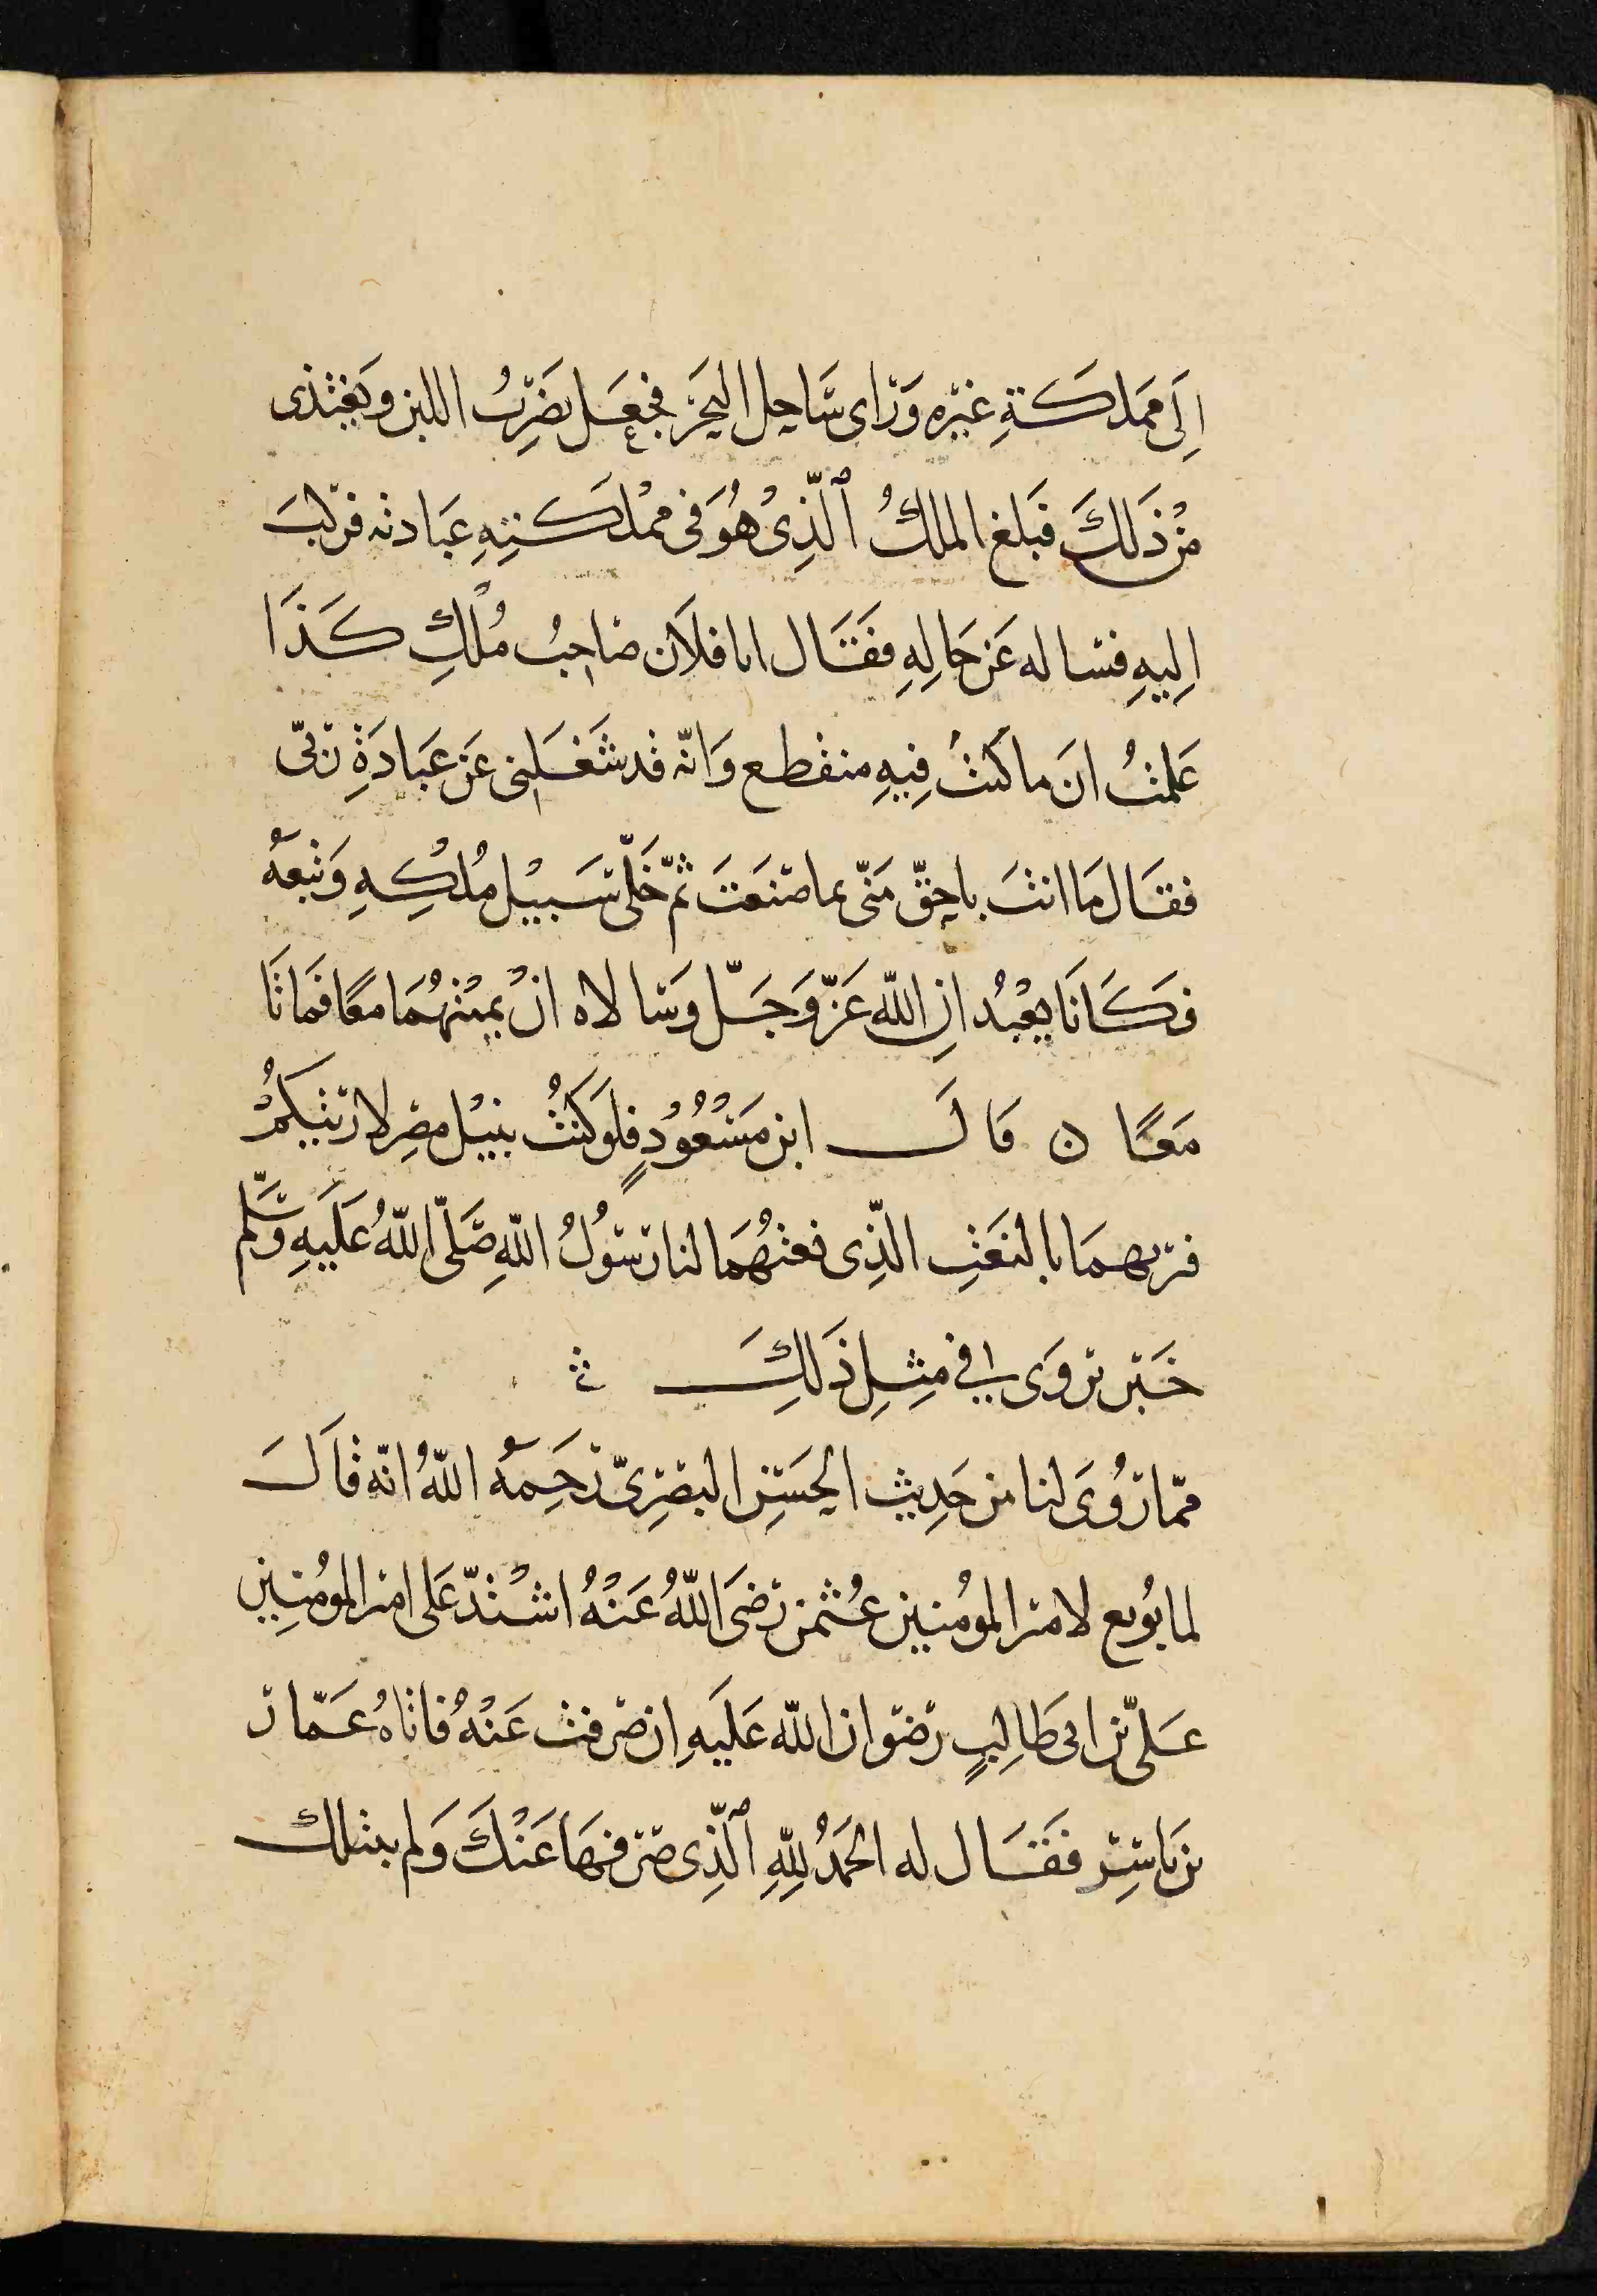 اِلَى مَمْلَكَةِ غَيْره وَرَاى سَاحِل البَحْر فجَعَل يَضْرِبُ اللبن وَيَغْتَذى
مِنْ ذَلِكَ فَبَلغ الملكُ ٱلَّذِىْ هُوَ فى ممْلَكَتِهِ عِبَادته فرَكبَ
اِليهِ فسَاله عَنْ حَالِهِ فَقَال انا فلَان صَاحِبُ مُلْكِ كَذَا
عَلمْتُ انَ ما كنتُ فِيهِ منقطع وَانّه قد شَغَلنِى عَن عِبَادَةِ رَبّى
فقَال مَا انتَ باحقّ مَنّى بما صَنَعتَ ثمّ خَلّى سَبيْل مُلْكِهِ وَتبعَهُ
فَكَانَا يعْبُدانِ اللّه عَزّ وَجَلّ وَسَالاه انْ يميْتهُمَا معًا فَمَاتَا
مَعًا ن قَالَ ابن مَسْعُوْدٍ فلَو كنْتُ بنيْل مصِر لارَيتكمْ
قبريهمَا بالنَعْتِ الّذِى نعتهُمَا لنا رَسُولُ اللّهِ صَلّى اللّهُ عَلَيهِ وَسَلّم
خَبَر رُوِىَ لى فى مِثِلِ ذَلِكَ
ممّا رُوِىَ لنا من حَدِيث الحسَنِ البصْرِىّ رَحِمَهُ اللّهُ انّه قَالَ
لما بُويع لامير المومُنين عُثمن رَضىَ اللّهُ عَنْهُ اشْتدّ عَلى امير المومُنِين
عَلىّ بن ابى طَالِبٍ رِضوَان اللّه عَلَيهِ ان صُرفت عَنْهُ فاتاهُ عَمّار
بن يَاسِر فَقَال له الحَمْدُ لِلّهِ ٱلَّذِى صَرَفهَا عَنْكَ وَلم يبتلك